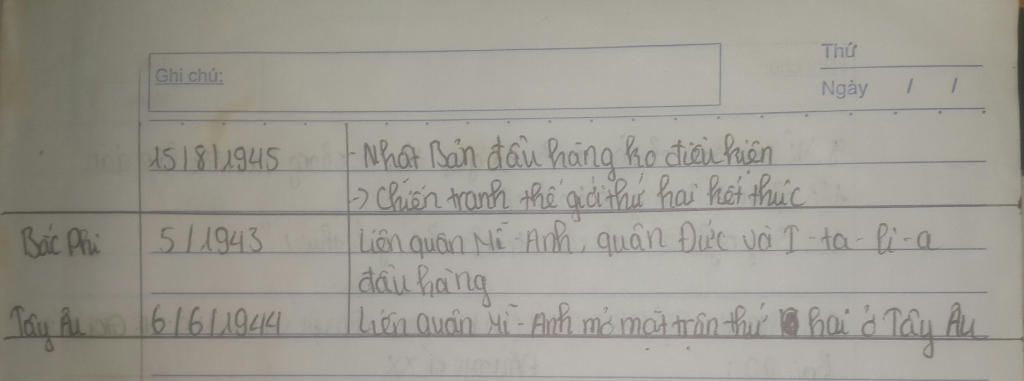 Thứ
Ghi chú:
Ngày / /
15/8/1945 - Nhật Bản đầu hàng ko điều kiện
-> Chiến tranh thế giới thứ hai kết thúc
Bắc Phi 5/1943 Liên quân Mĩ - Anh, quân Đức và I-ta-li-a
đầu hàng
Tây Âu 6/6/1944 Liên quân Mĩ - Anh mở mặt trận thứ hai ở Tây Âu